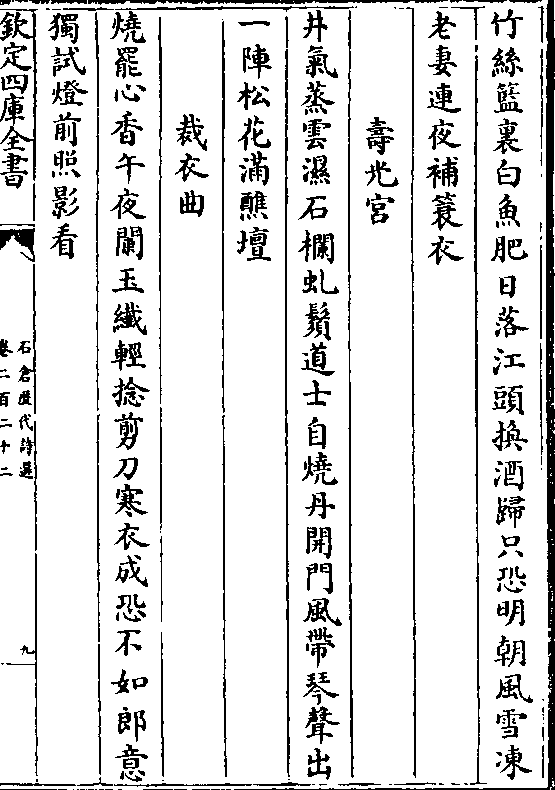 竹絲籃裏白魚肥日落江頭換酒歸只恐明朝風雪凍
老妻連夜補簑衣
壽光宮
井氣蒸雲濕石欄虬鬚道士自燒丹開門風帶琴聲出
一陣松花滿醮壇
裁衣曲
燒罷心香午夜闌玉纖輕捻剪刀寒衣成恐不如郎意
獨試燈前照影看
欽定四庫全書
石倉歷代詩選
卷二百二十二
九